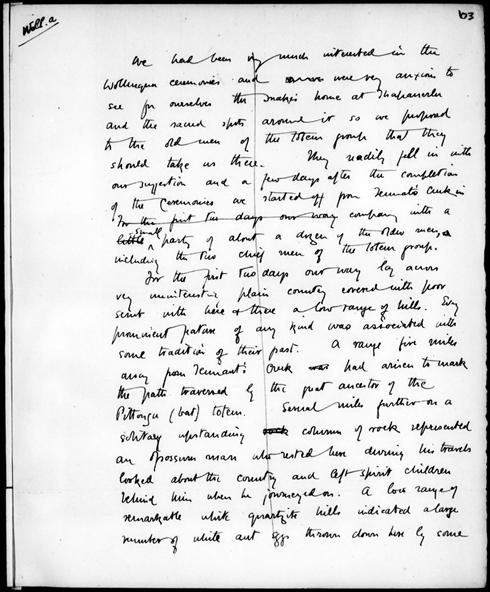 Woll. a
63
We had been very much interested in the
Wollunqua ceremonies and were very anxious to
see for ourselves the Snake's home at Thapauerlu
and the sacred spots around it so we proposed
to the old men of the totem group that they
should take us there. They readily fell in with
our suggestion and a few days after the completion
of the ceremonies we started off from Tennant's Creek in
For the first two days our way company with a
little small party of about a dozen of the older men,
including the two chief men of the totem group.
For the first two days our way lay across
very uninteresting plain country covered with poor
scrub with here & there a low range of hills. Every
prominent feature of any kind was associated with
some tradition of their past. A range five miles
away from Tennant's Creek had arisen to mark
the path traversed by the great ancestor of the
Pittongu (bat) totem. Several miles further on a
solitary upstanding rock column of rock represented
an opossum man who rested here during his travels
looked about the country and left spirit children
behind him when he journeyed on. A low range of
remarkable white quartzite hills indicated a large
number of white ant eggs thrown down here by some